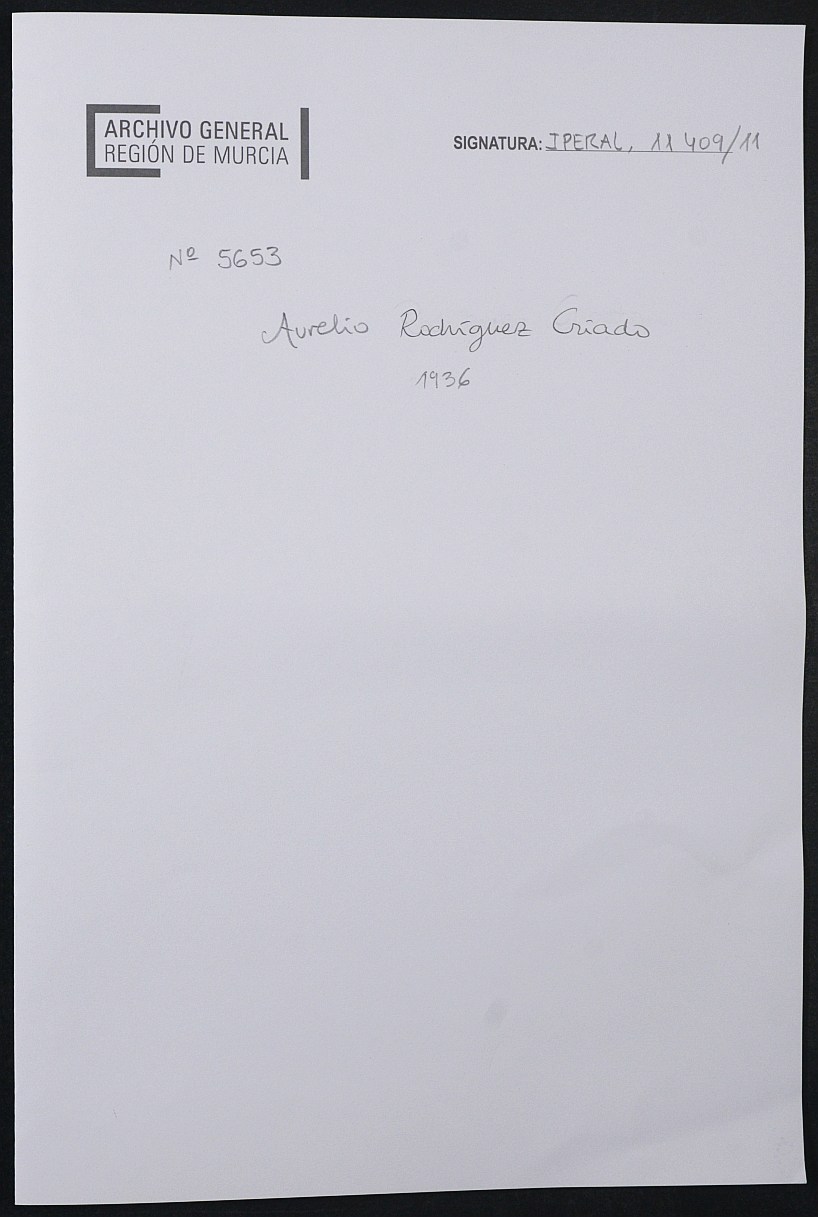 ARCHIVO GENERAL
REGIÓN DE MURCIA
SIGNATURA: IPERAL, 11409/11
Nº 5653
Aurelio Rodríguez Criado
1936